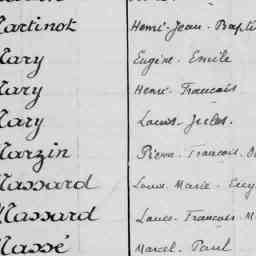 Martinot Henri-Jean-Bapti
Mary Eugène-Emile
Mary Henri-François
Mary Louis-Jules.
Marzin Pierre-François-
Massard Louis-Marie-Eug
Massard Louis-François-M
Massé Marcel-Paul